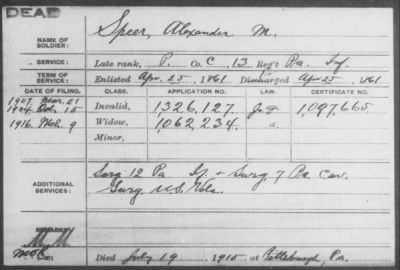 DEAD
NAME OF SOLDIER: Speer, Alexander M.
SERVICE: Late rank, P. Co. C 13 Reg't Pa. Inf.
TERM OF SERVICE: Enlisted Apr. 25, 1861 Discharged Apr 25, 1861
DATE OF FILING. CLASS. APPLICATION NO. LAW. CERTIFICATE NO.
1907 Mar. 21
15 Invalid, 1,326,127 1,097,665
1916 9 Widow, 1062,234 a.
Minor,
ADDITIONAL SERVICES: Surg 12 Pa. Surg. 7 Pa Cav.
Surg. U.S. Vols.
REMARKS:
Died July 19 1915, at Pittsburgh, Pa.